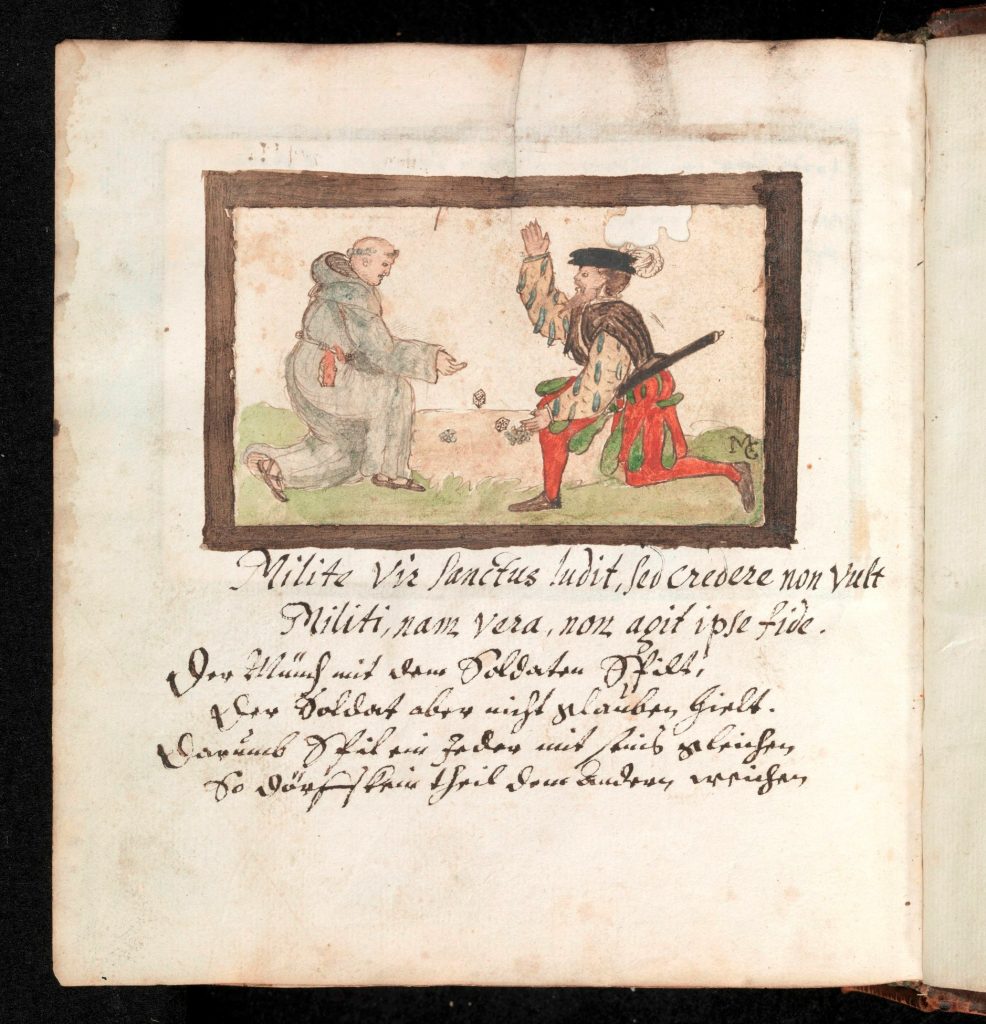 MG
Milite Vir sanctus ludit, sed credere non vult
Militi, nam vera, non agit ipse fide.
Der Münch mit dem Soldaten Spilt,
Der Soldat aber nicht glauben hielt.
Darumb Spil ein Jeder mit seins gleichen
So dörfft kein theil dem andern weichen